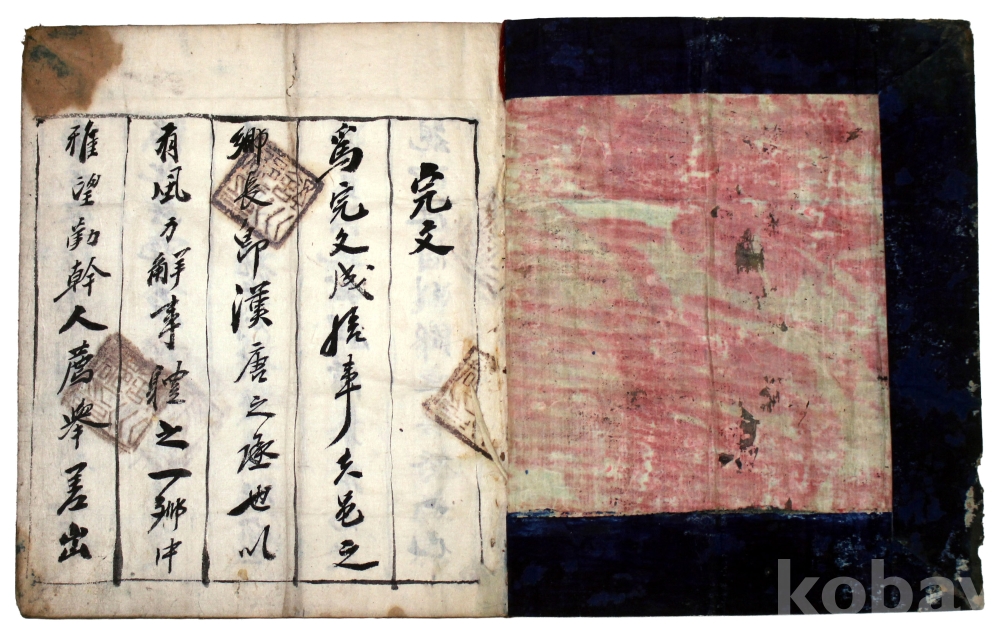 完文
爲完文成給事夫邑之
鄕長卽漢唐之丞也以
有風力解事軆之一鄕中
雅望勤幹人薦擧差出
kobay